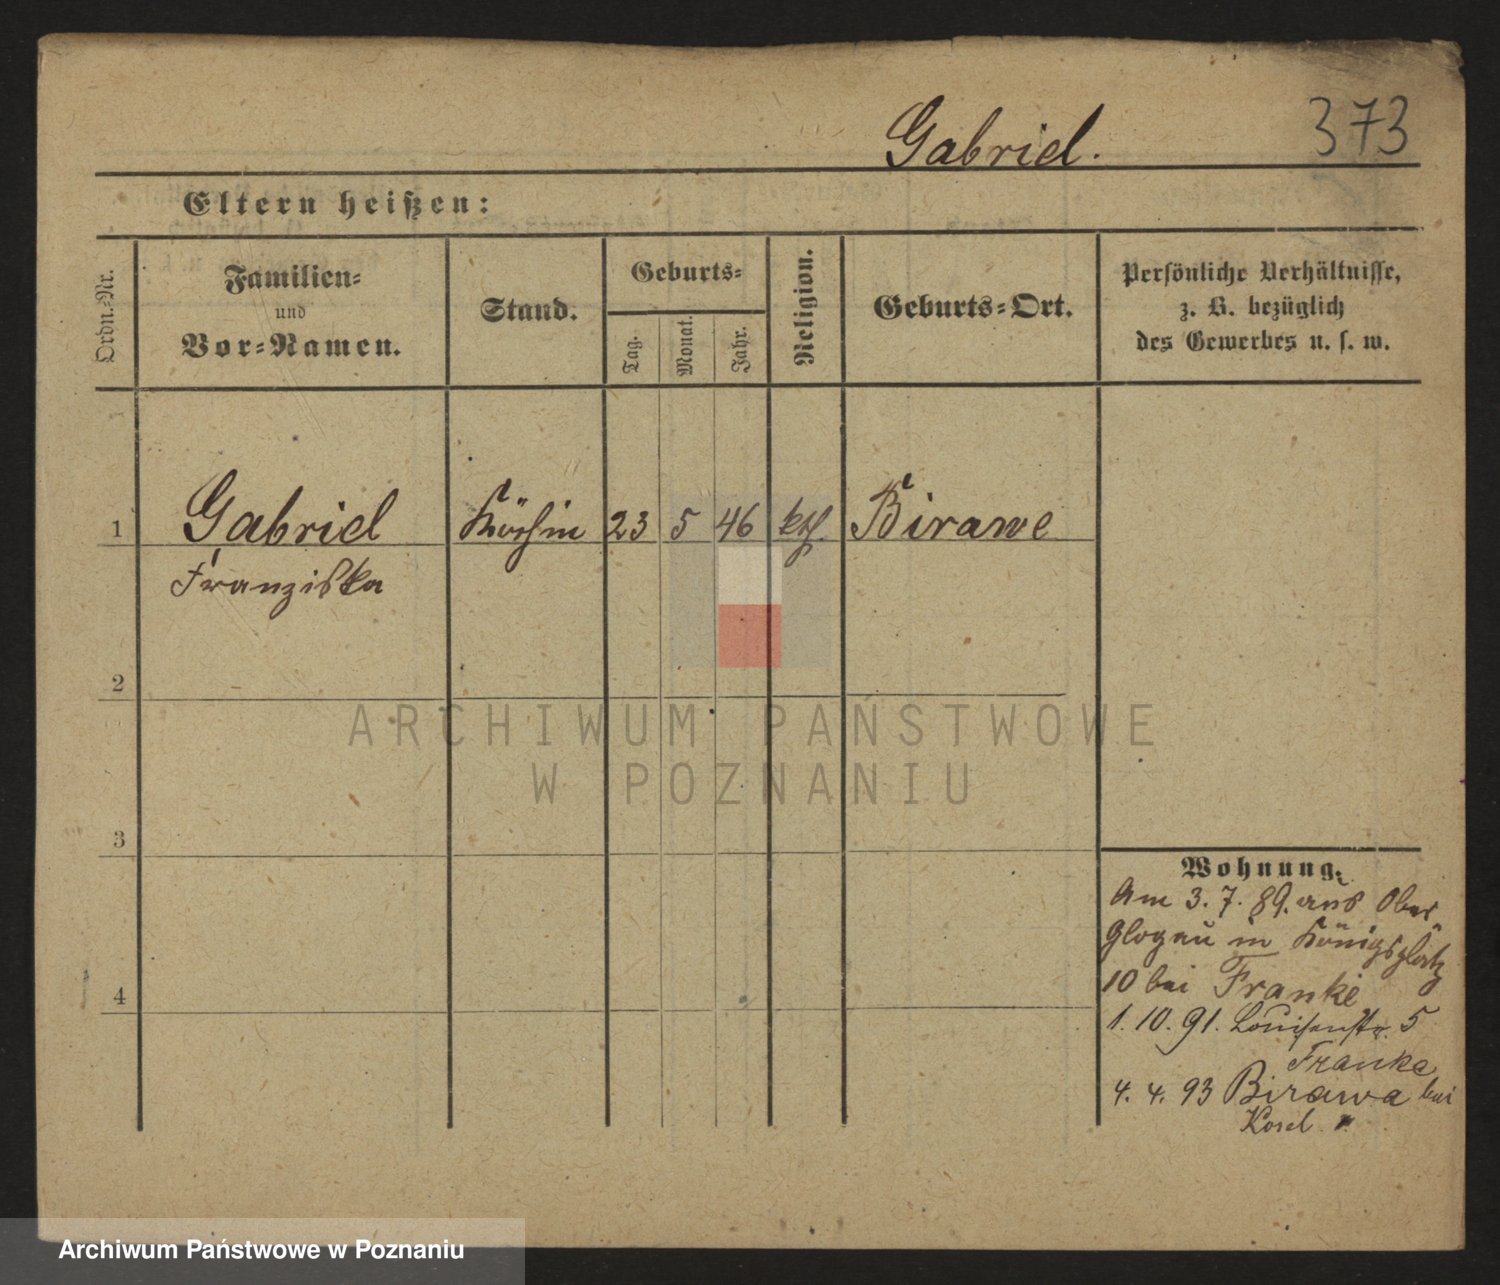 Gabriel.
373
Eltern heißen:
Ordn.-Nr.
Familien-
und
Vor-Namen.
Stand.
Geburts-
Tag.
Monat.
Jahr.
Religion.
Geburts-Ort.
Persönliche Verhältnisse,
z. B. bezüglich
des Gewerbes u. s. w.
1 Gabriel Köchin 23 5 46 kth. Birawe
Franziska
2
3
4
Wohnung.
Am 3. 7. 89. aus Ober
Glogau in Königsplatz
10 bei Franke
1. 10. 91. Louisenstr. 5
Franke
4. 4. 93 Birawa bei
Kosel
ARCHIWUM PAŃSTWOWE
W POZNANIU
Archiwum Państwowe w Poznaniu